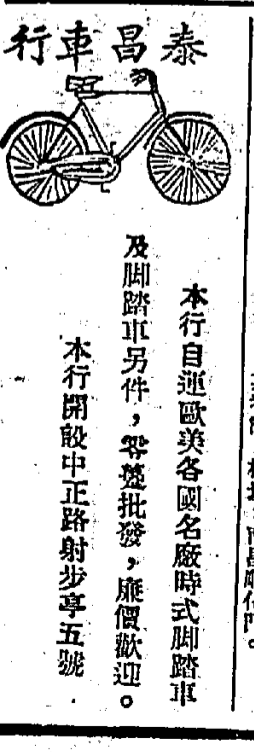 泰昌車行
本行自運歐美各國名廠時式脚踏車
及脚踏車另件，零躉批發，廉價歡迎。
本行開設中正路射步亭五號